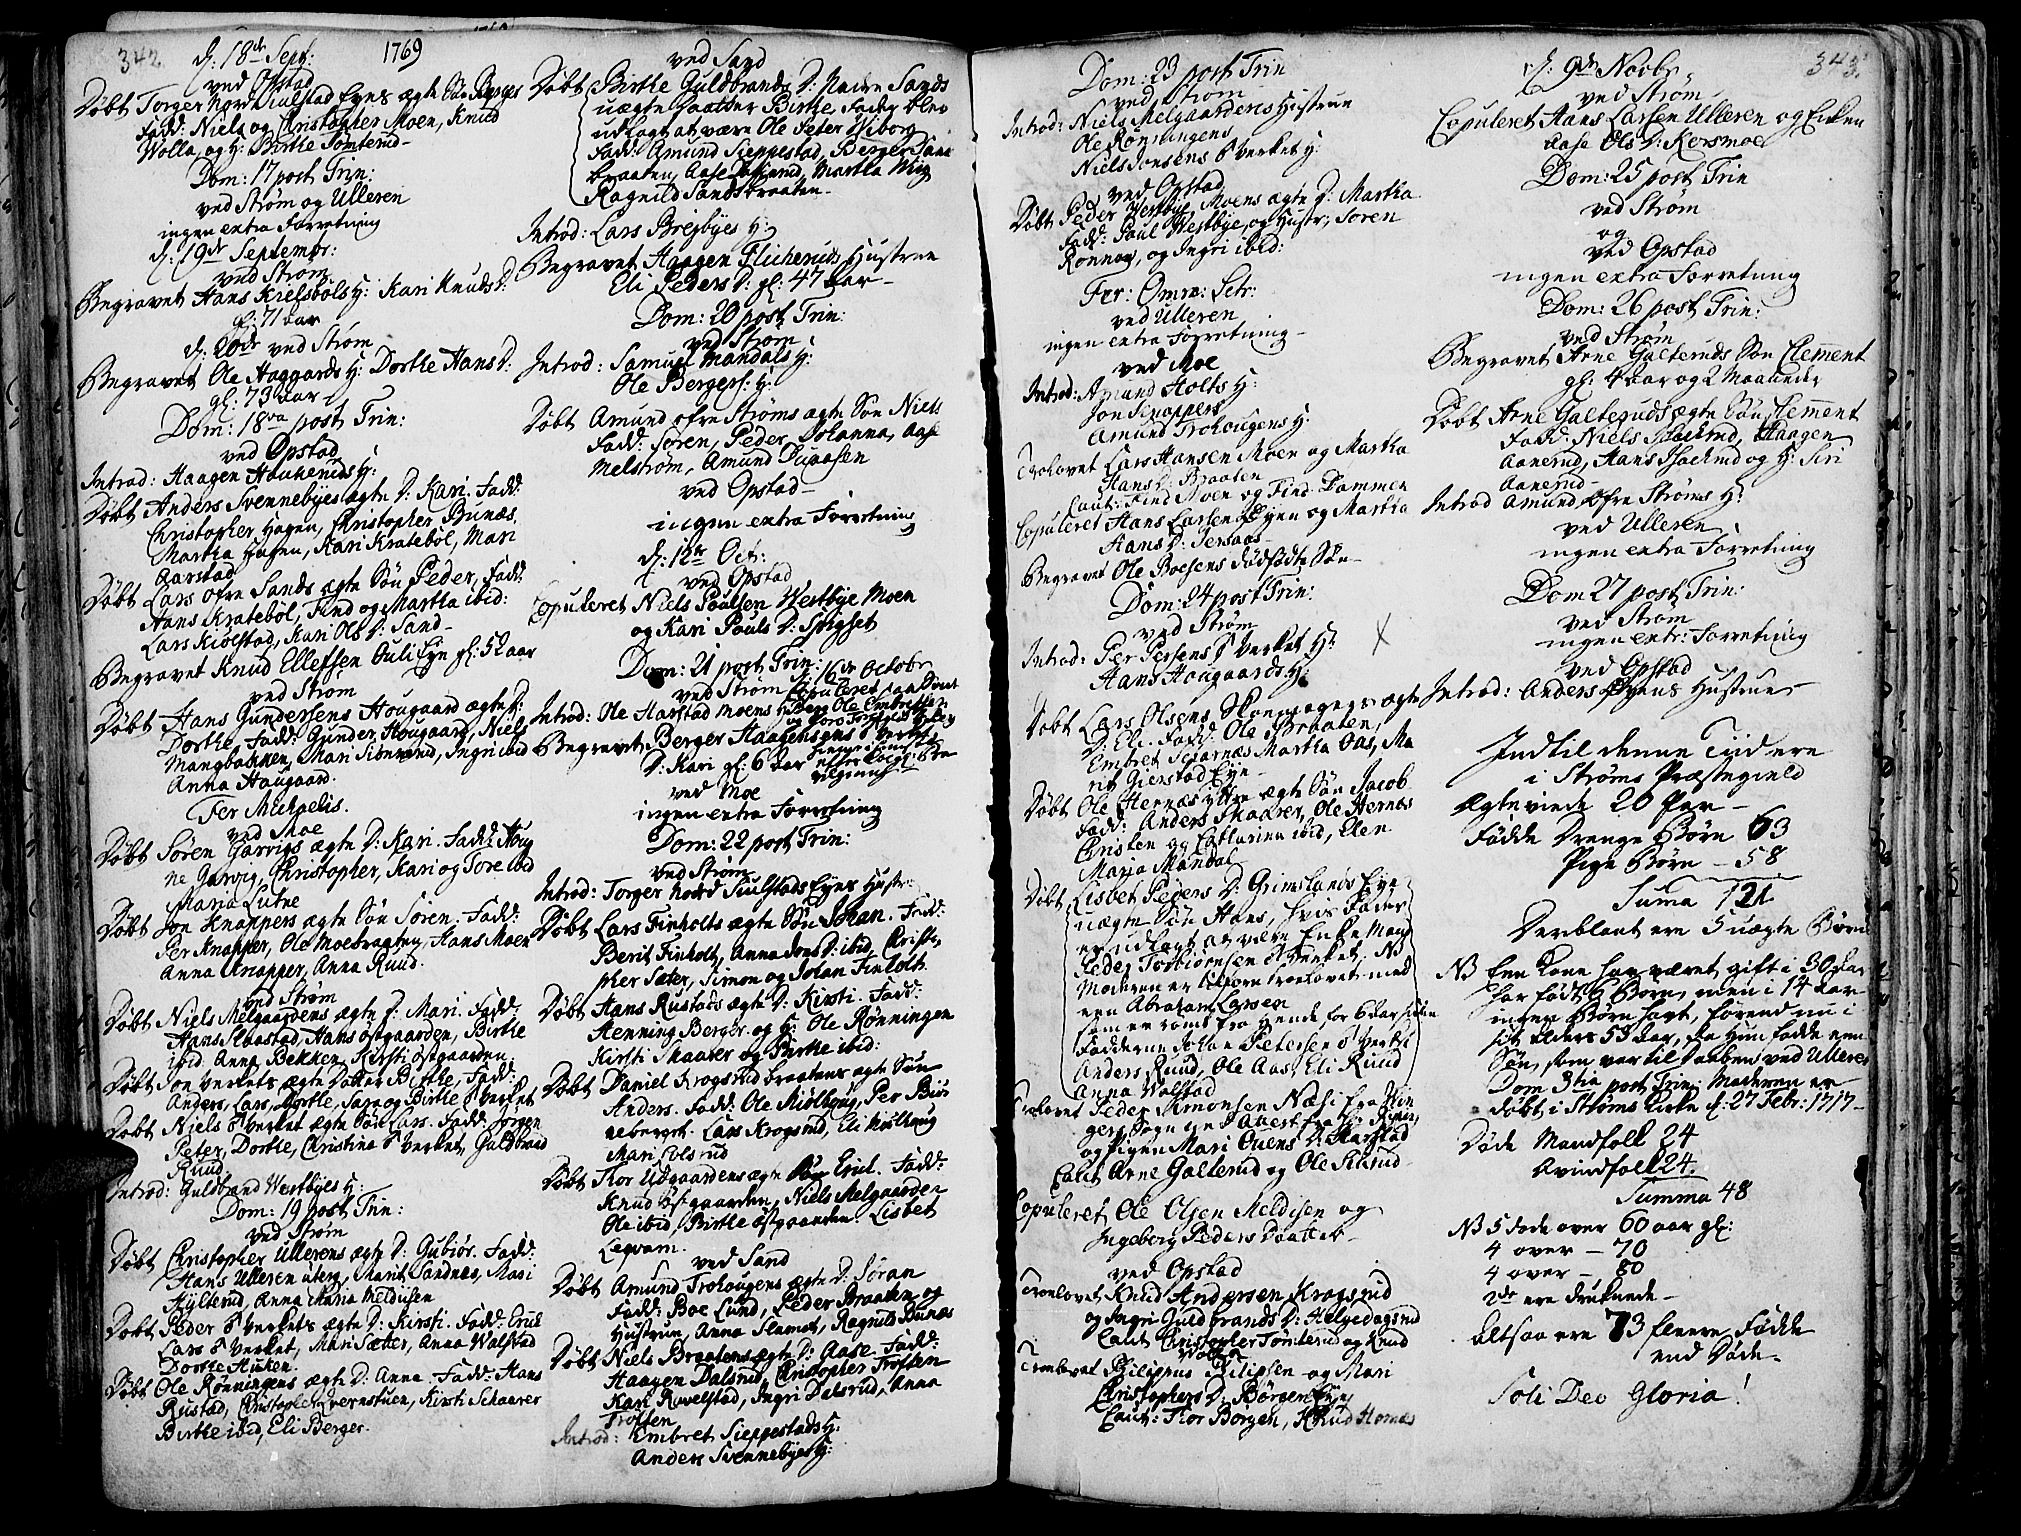 342.
1769
d: 18de Sept:
ved Opstad
Døbt Torger Nord Kiulstad Eyes ægte Søn Berger
Fadd: Niels og Christopher Moen, Knud
Wolla, og H: Birthe Tomterud
Dom: 17 post Trin:
ved Strøm og Ulleren
ingen extra Forretning
d: 19de Septembr:
ved Strøm
Begravet Hans Kielsbøls H: Kari Knuds D:
gl: 71 aar
d: 20de ved Strøm
Begravet Ole Haggards H: Dorthe Hans D:
gl: 73 aar
Dom: 18va post Trin:
ved Opstad
Introd: Haagen Haukeruds H:
Døbt Anders Svennebyes ægte D: Kari. Fadd:
Christopher Hagen, Christopher Bunæs,
Martha Hagen, Kari Kratebøl, Mari
Aarstad
Døbt Lars øfre Sands ægte Søn Peder, Fadd:
Hans Kratebøl, Find og Martha ibid:
Lars Kiølstad, Kari Ols D: Sand
Begravet Knud Ellefsen Ouli Eye gl: 52 aar
ved Strøm
Døbt Hans Gundersens Hougaard ægte D:
Dorthe. Fadd: Gunder Hougaard, Niels
Mangbakken, Mari Sidnerud, Ingri ibid
Anna Haugaard.
Fer Michaelis.
ved Moe
Døbt Søren Garvigs ægte D: Kari. Fadd:
Garvig, Christopher, Kari og Tore ibid
Maria Lutne
Døbt Jon Knappers ægte Søn Søren. Fadd:
Per Knapper, Ole Moesbragten, Hans Moen
Anna Knapper, Anna Ruud.
ved Strøm
Døbt Niels Melgaardens ægte D: Mari. Fadd:
Hans Slaastad, Hans Østgaarden, Birthe
ibid, Anna Bekken, Kirsti Østgaarden
Døbt Jon Verkets ægte Datter Birthe, Fadd:
Anders, Lars, Dorthe, Sara og Birthe Verket
Døbt Niels Verket ægte Søn Lars. Fadd: Jørgen
Peter, Dorthe, Christina Verket, Guldbrand
Ruud
Introd: Guldbrand Westbyes H:
Dom: 19 post Trin:
ved Strøm
Døbt Christopher Ullerens ægte D: Gubiør. Fadd:
Hans Ulleren, Marit Sandnæs, Mari
Hylterud, Anna Maria Meldusen
Døbt Peder Verkets ægte D: Kirsti. Fadd: Erich
Lars Verket, Mari Sætter, Anna Walstad
Dorthe Huken.
Døbt Ole Rønningens ægte D: Anna. Fadd: Hans
Rustad, Christopher Qvernstuen, Kirsti Schaarer
Birthe ibid, Eli Berger.
ved Sand
Døbt Birthe Guldbrands D: Nedre Sands
uægte Daatter Birthe. Fader blev
udlagt at være Ole Peter Wiborg
Fadd: Amund Sieppestad, Berger Sand
braaten, Aase, Martha Wiig
Ragnild Sandsbraaten
Introd: Lars Breibyes H:
Begravet Haagen Flicheruds Hustrue
Eli Peders D: gl: 47 aar
Dom: 20 post Trin:
ved Strøm
Introd: Samuel Mandals H:
Ole Bergers: H:
Døbt Amund øfre Strøms ægte Søn Niels
Fadd: Søren, Peder, Johanna, Aase
Melstrøm, Amund Duaasen
ved Opstad
ingen extra Forretning
d: 12te Oct:
ved Opstad
Copuleret Niels Poulsen Westbye Moen
og Kari Pouls D: Spigset
Dom: 21 post Trin:
ved Strøm
d: 16de Octobr
Copuleret
Introd: Ole Harstad Moens H:
Begravet Berger Haagensens Verket
D: Kari gl: 6 aar
ved Moe
ingen extra Forretning
Dom: 22 post Trin:
ved Strøm
Introd: Torger Nord Kiulstads Eyes Hustr:
Døbt Lars Finholts ægte Søn Johan. Fadd:
Berit Finholt, Anna Jons D: ibid, Christo-
pher Sæter, Simon og Johan Finholt.
Døbt Hans Rustads ægte D: Kirsti. Fadd:
Henning Berger og H: Ole Rønningen
Kirsti Skaarer og Birthe ibid:
Døbt Daniel Krogsrud braatens ægte Søn
Anders. Fadd: Ole Miølhoug, Per Biør
neberget. Lars Krogsrud, Eli Miølhoug
Mari
Døbt Thor Udgaardens ægte Søn Erich. Fadd:
Knud Østgaarden, Niels Melgaarden
Ole ibid, Birthe Østgaarden. Lisbet
Leqvam.
ved Sand
Døbt Amund Trohougens ægte D: Søran
Fadd: Boe Lund, Peder Braaten og
Hustrue, Anna Slemst, Ragnild Bunæs
Døbt Niels Braatens ægte D: Aase. Fadd:
Haagen Dalsrud, Christopher Troften
Kari Rovelstad, Ingri Dalsrud, Anna
Troften
Introd: Embret Sieppestads H:
Anders Svennebyes H:
343.
Dom: 23 post Trin
ved Strøm
Introd: Niels Melgaardens Hustrue
Ole Rønningens
Niels Jonsens Verket H:
ved Opstad
Døbt Peder Westbye Moens ægte D: Martha
Fadd: Poul Westbye, og Hustr:, Søren
Rønnoug, og Ingri ibid:
Fer: Omn: Sctr:
ved Ulleren
ingen extra Forretning
ved Moe
Introd: Amund Holts H:
Jon Knappers
Amund Trohougens H:
Trolovet Lars Hansen Moen og Martha
Hans D: Braaten
Caut: Find Moen og Find Dammen
Copuleret Hans Larsen Eyen og Martha
Hans D: Persaas
Begravet Ole Boesens dødfødte Søn
Dom: 24 post Trin:
ved Strøm
Introd: Per Persens Verket H:
Hans Hougaards H:
Døbt Lars Olsens Skomagers ægte
D: Eli. Fadd: Ole Braaten,
Embret Scharnæs Martha Aas, Ma
rit Gierstad Eye
Døbt Ole Hernæs yttre ægte Søn Jacob
Fadd: Anders Skaarer, Ole Hernæs
Christen og Catharina ibid, Elen
Maria Mandal
Døbt Lisbet Peders D: Grimslands Eye
uægte Søn Hans, hvis Fader
er udlagt at være Enke Mand
Peder Torbiørnsen Verket. NB
Moderen er tilforn trolovet med
een Abraham Larsen
som er rømt fra hende for 6 aar siden
Fadderne Johan Petersen Verket
Anders Ruud, Ole Aas, Eli Ruud
Anna Walstad
Trolovet Peder Simonsen Næs i fra Win
gers Sogn
og Pigen Mari Ouens D: Harstad
Caut Arne Galterud og Ole
Copuleret Ole Olsen Meldisen og
Ingeborg Peders Daatter
ved Opstad
Trolovet Knud Andersen Krogsrud
og Ingri Guldbrands D: Helgedagsrud
Caut Christopher Tomterud og Knud
Wolla
Trolovet Philippus Philipsen og Mari
Christophers D: Børgen Eye
Caut: Thor Børgen, Knud Hornæs
d: 9de Novbr
ved Strøm
Copuleret Hans Larsen Ulleren og Enken
Aase Ols D: Korsmoe
Dom: 25 post Trin
ved Strøm
og
ved Opstad
ingen extra Forretning
Dom: 26 post Trin:
ved Strøm
Begravet Arne Galteruds Søn Clement
gl: 4 aar og 2 Maaneder
Døbt Arne Galteruds ægte Søn Clement
Fadd: Niels, Haagen
Aanerud, Hans og H: Siri
Aanerud
Introd Amund øfre Strøms H:
ved Ulleren
ingen extra Forretning
Dom 27 post Trin:
ved Strøm
ingen extr: Forretning
ved Opstad
Introd: Anders Eyens Hustrue
Indtil denne Tiid ere
i Strøms Præstegield
Ægteviede 20 Par
Fødde Drenge Børn 63
Pige Børn – 58
Suma 121
Deriblant ere 5 uægte Børn
NB Een Kone har været gift i 30 Aar
har født 6 Børn, men i 14 aar
ingen Børn havt, førend nu i
sit Alders 53 Aar, da hun fødde een
Søn, som var til Daaben ved Ulleren
Dom 3tia post Trin: Moderen er
døbt i Strøms Kirke d: 27 Febr: 1717
Døde Mandfolk 24
Qvindfolk 24.
Summa 48
NB 5 døde over 60 aar gl:
4 over – 70
4 over – 80
2de ere druknede
Altsaa ere 73 fleere Fødde
end Døde
Soli Deo Gloria!